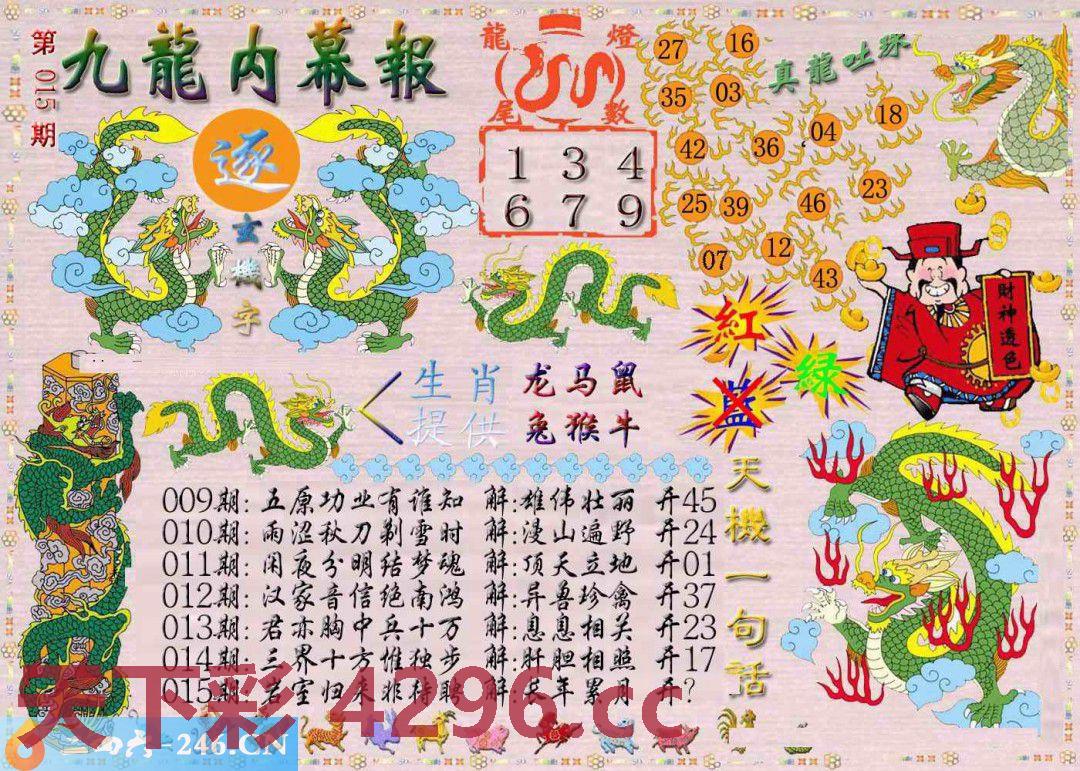 第015期
九龍内幕報
逐
玄機字
龍燈
尾數
1 3 4
6 7 9
真龍吐珠
27 16
35 03
42 36 04 18
25 39 46 23
07 12 43
財神透色
紅
蓝
绿
生肖 龙马鼠
提供 兔猴牛
天機一句话
009期:五原功业有谁知 解:雄伟壮丽 开45
010期:雨涩秋刀剃雪时 解:漫山遍野 开24
011期:闲夜分明结梦魂 解:顶天立地 开01
012期:汉家音信绝南鸿 解:异兽珍禽 开37
013期:君亦胸中兵十万 解:息息相关 开23
014期:三界十方惟独步 解:肝胆相照 开17
015期:岩室归来非待聘 解:长年累月 开?
天下彩 4296.cc
246.CN